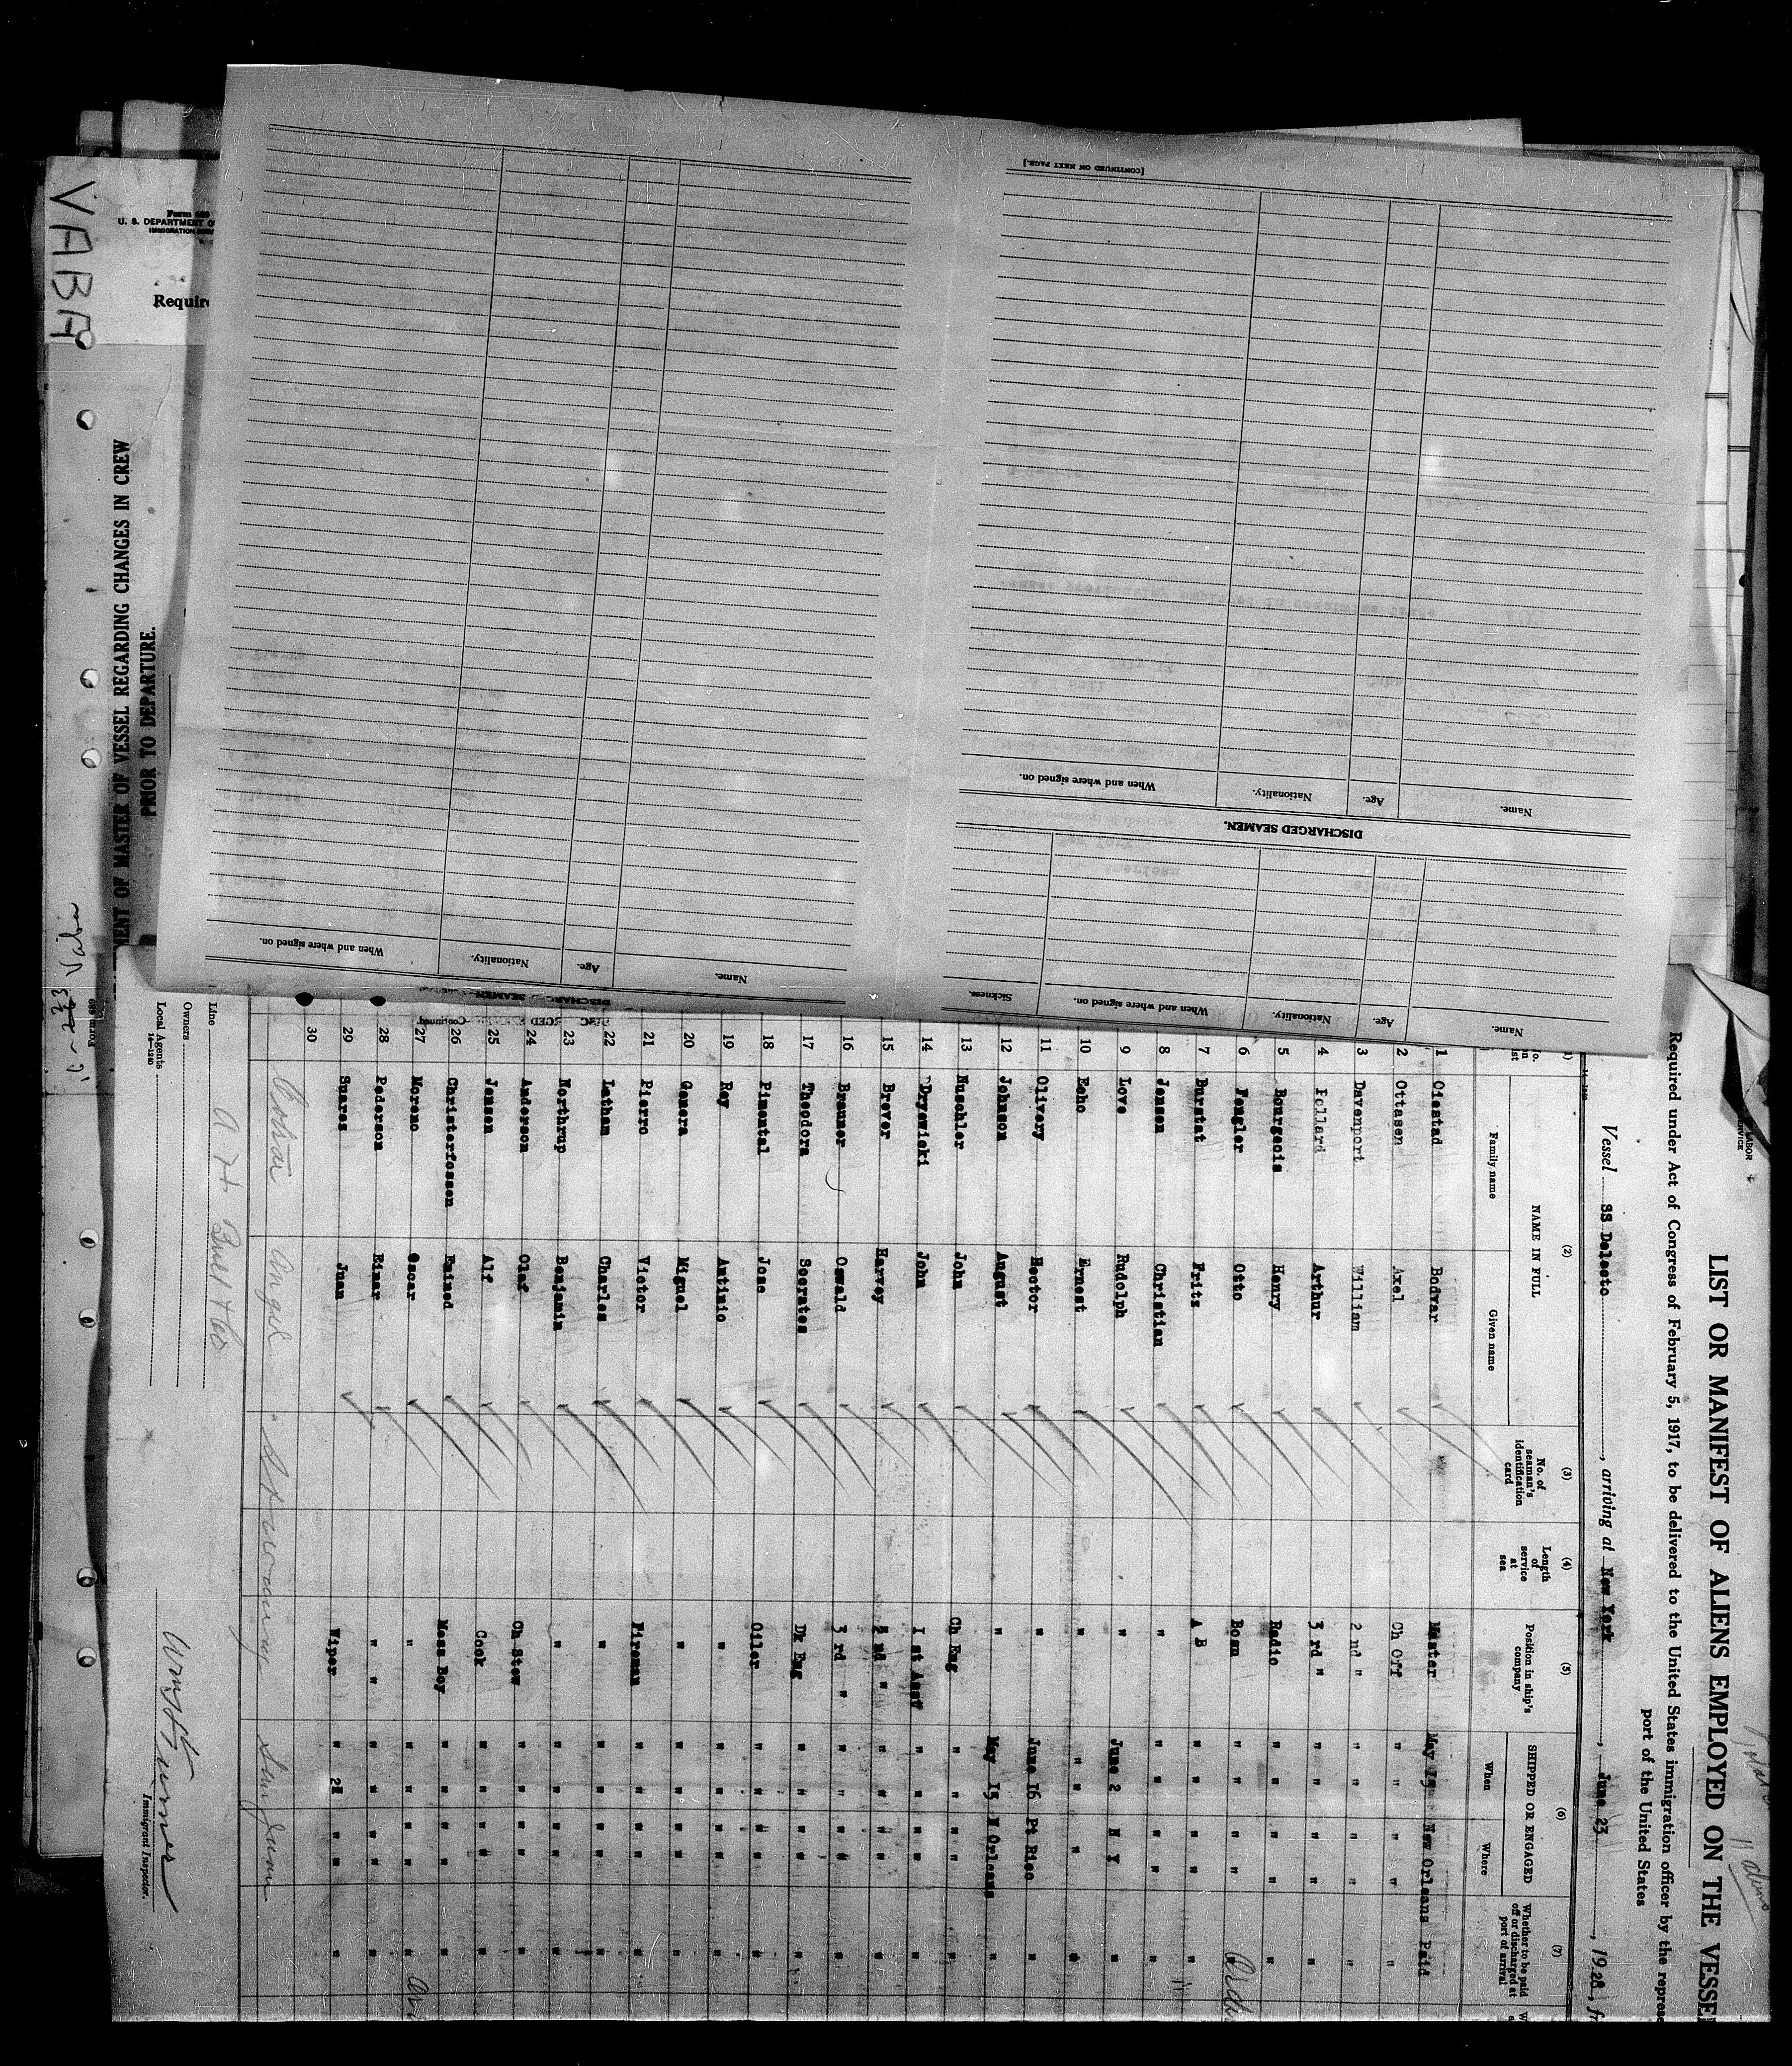 LIST OR MANIFEST OF ALIENS EMPLOYED ON THE VESSEL
Required under Act of Congress of February 5, 1917, to be delivered to the United States immigration officer by the repres
port of the United States
Vessel SS Delecto, arriving at New York, June 23, 1928, fr
(2) (3) (4) (5) (6) (7)
NAME IN FULL No. of seaman's identification card Length of service at sea Position in ship's company SHIPPED OR ENGAGED Whether to be paid off or discharged at port of arrival
Family name Given name When Where
1 Olestad Bodvar Master May 15 New Orleans Paid
2 Ottasen Axel Ch Off " " " " "
3 Davenport William 2 nd " " " " " "
4 Pollard Arthur 3 rd " " " " " "
5 Bourgeois Henry Radio " " " " "
6 Fengler Otto Bosn " " " " "
7 Burstat Fritz A B " " " " "
8 Jensen Christian " " " " " "
9 Love Rudolph " June 2 N Y "
10 Echo Ernest " " " " "
11 Olivery Hector " June 16 Pt Rico "
12 Johnson August " May 15 N Orleans "
13 Nuschler John Ch Eng " " " " "
14 Drywiski John I st Asst " " " " "
15 Brever Harvey 2 nd " " " " " "
16 Brauner Oswald 3 rd " " " " " "
17 Theodora Socrates Dk Eng " " " " "
18 Pimental Jose Oiler " " " " "
19 Rey Antinio " " " " " "
20 Genera Miguel " " " " " "
21 Pierro Victor Fireman " " " " "
22 Latham Charles " " " " " "
23 Northrup Benjamin " " " " " "
24 Anderson Olaf Ch Stew " " " " "
25 Jensen Alf Cook " " " " "
26 Christerfossen Emined Mess Boy " " " " "
27 Moreno Oscar " " " " " "
28 Pederson Einar " " " " " " "
29 Suares Juan Wiper " 28 " " "
30
Angel San Juan
Line A H Bull & Co
Owners
Local Agents
14-1240
Immigrant Inspector.
[CONTINUED ON NEXT PAGE.]
Name. Age. Nationality. When and where signed on.
DISCHARGED SEAMEN.
Name. Age. Nationality. When and where signed on. Sickness.
Name. Age. Nationality. When and where signed on.
DISCHARGED SEAMEN—Continued.
Form 689
U. S. DEPARTMENT O
IMMIGRATION SERV
Require
MENT OF MASTER OF VESSEL REGARDING CHANGES IN CREW
PRIOR TO DEPARTURE.
Form 689
VABA